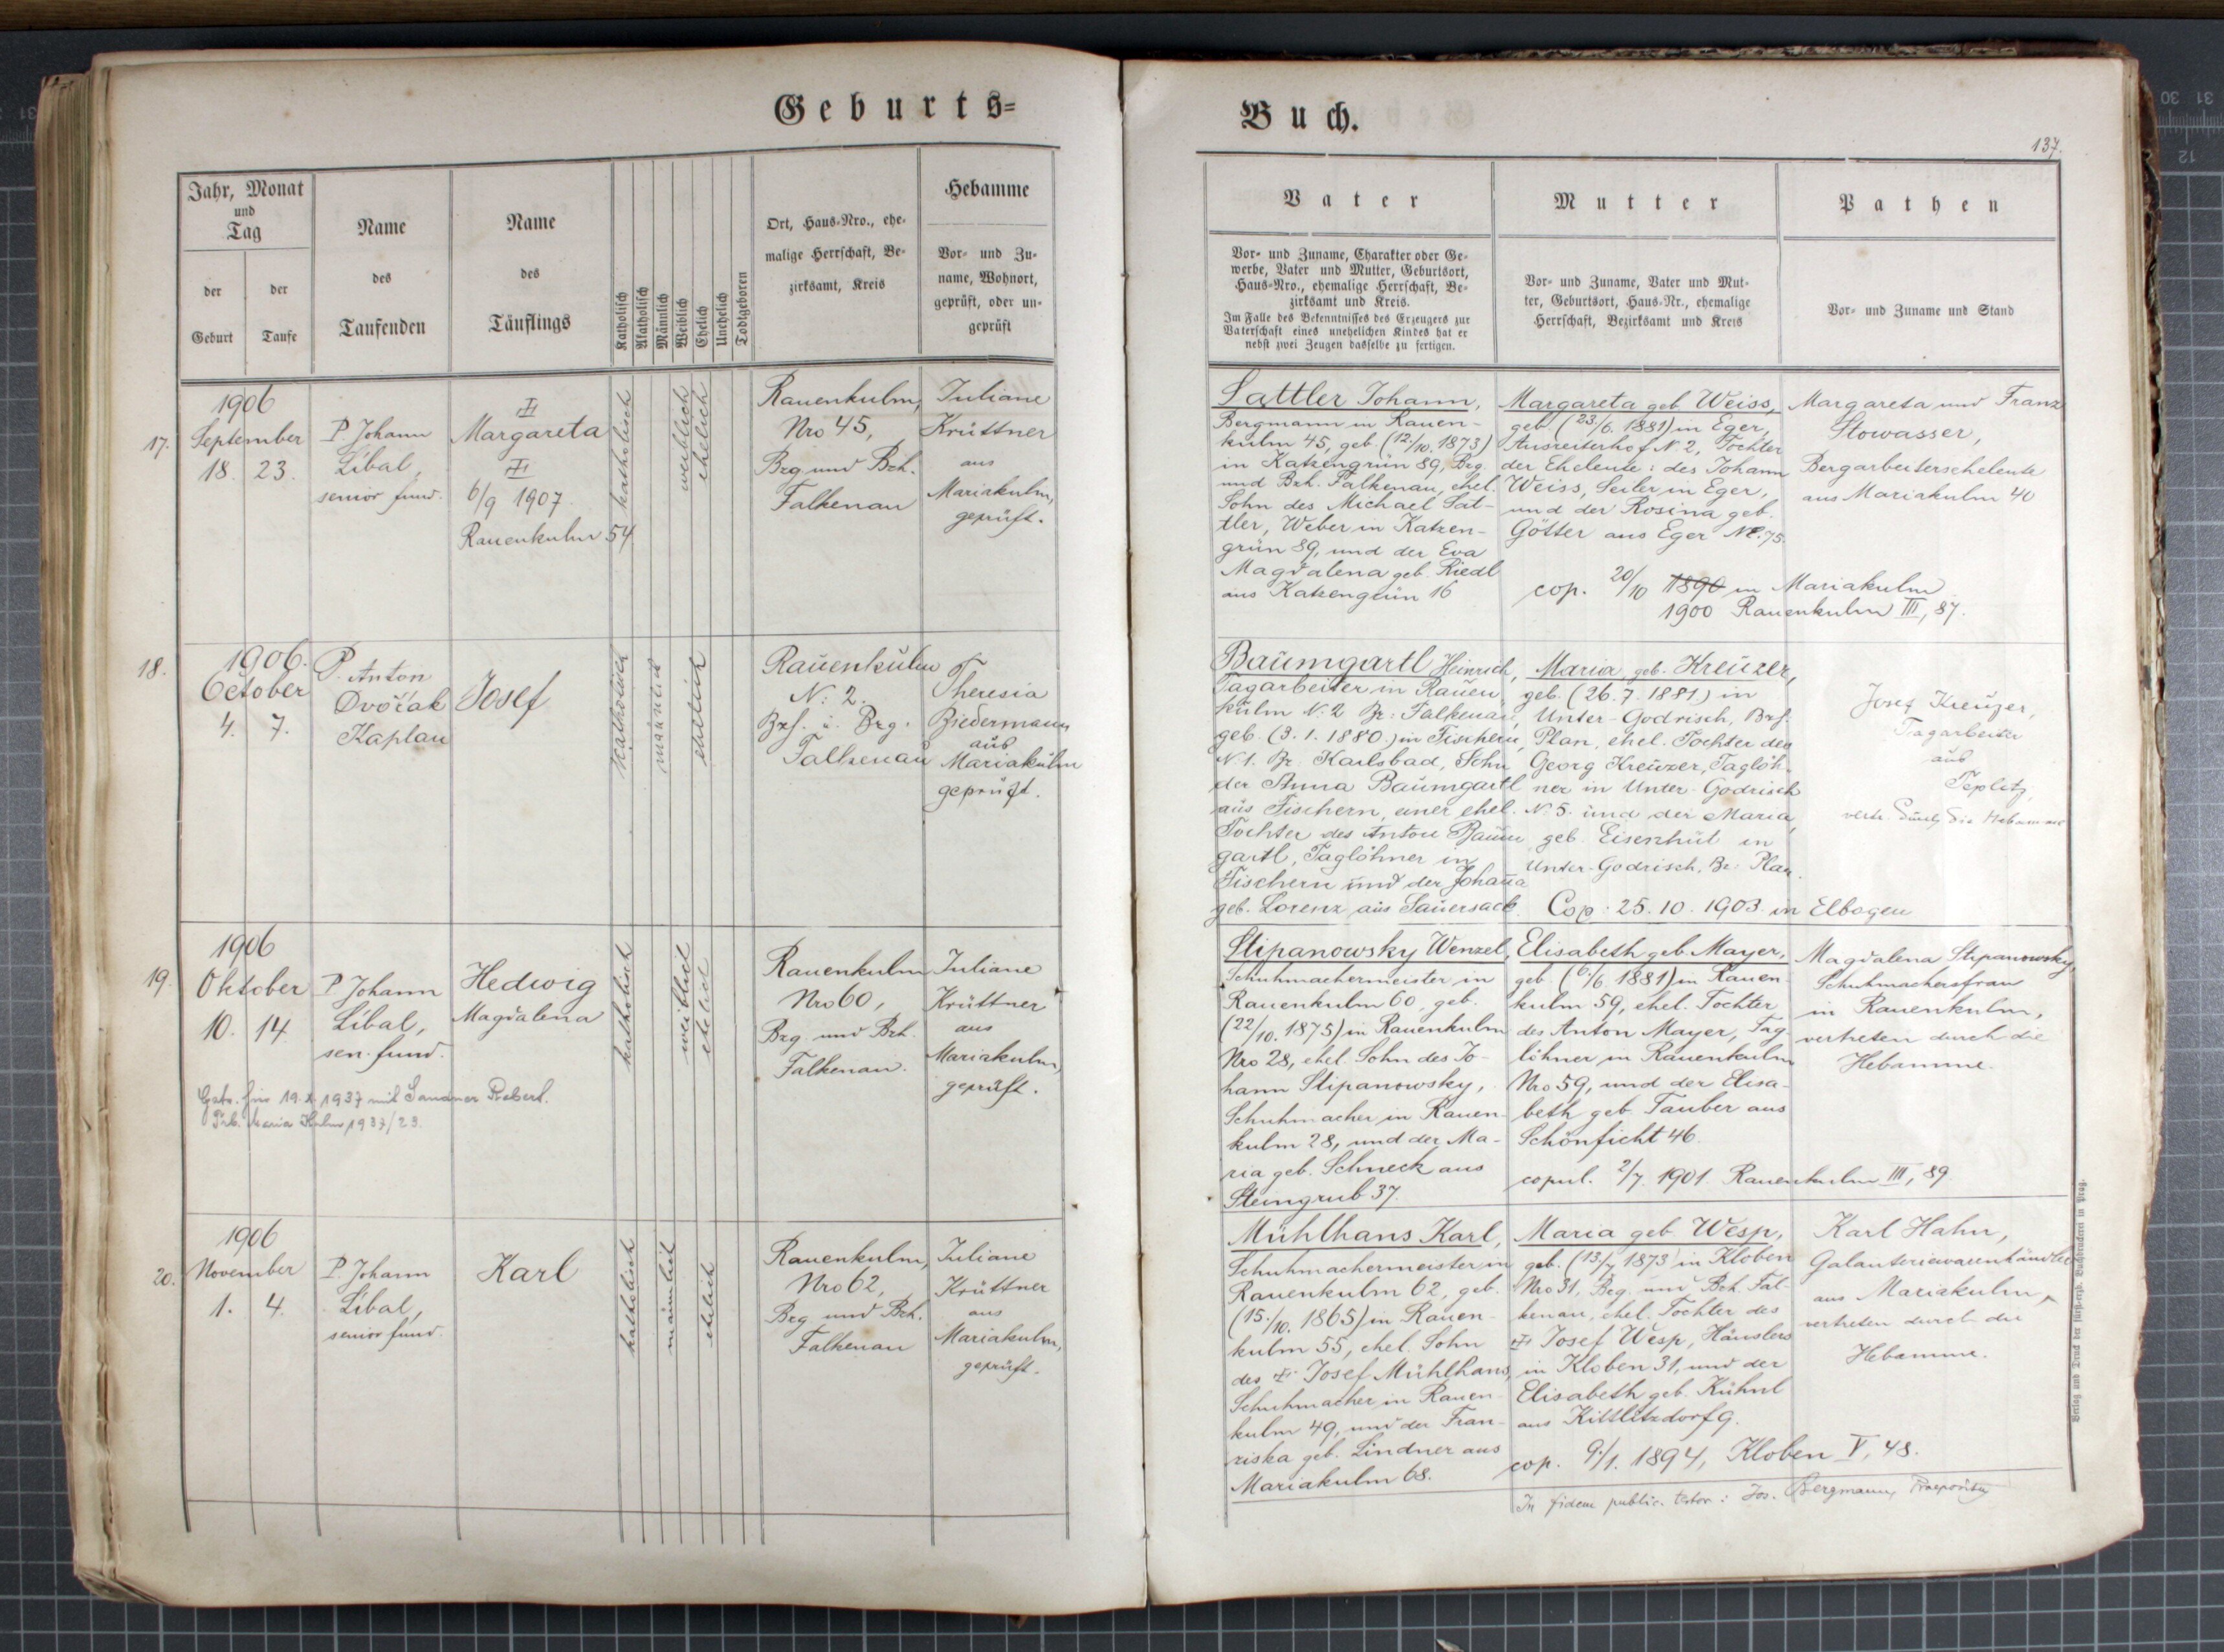 Geburts=
Jahr, Monat
und
Tag
der
Geburt
der
Taufe
Name
des
Taufenden
Name
des
Täuflings
Katholisch
Akatholisch
Männlich
Weiblich
Ehelich
Unehelich
Todtgeboren
Ort, Haus=Nro., ehe=
malige Herrschaft, Be=
zirksamt, Kreis
Hebamme
Vor= und Zu=
name, Wohnort,
geprüft, oder un=
geprüft
17.
1906
September
18. 23.
P. Johann
Líbal,
senior fund.
Margareta
6/9 1907.
Rauenkulm 54
katholisch
weiblich
ehelich
Rauenkulm,
Nro 45,
Bzg und Bzh.
Falkenau
Juliane
Krüttner
aus
Mariakulm,
geprüft.
18.
1906.
October
4. 7.
P. Anton
Dvořak
Kaplan
Josef
katholisch
männlich
ehelich
Rauenkulm
N: 2.
Bzh. u. Bzg.
Falkenau
Theresia
Biedermann
aus
Mariakulm
geprüft.
19.
1906
Oktober
10. 14.
P. Johann
Líbal,
sen. fund.
Hedwig
Magdalena
katholisch
weiblich
ehelich
Rauenkulm
Nro 60,
Bzg. und Bzh.
Falkenau.
Juliane
Krüttner
aus
Mariakulm,
geprüft.
1937 mit Sandner
Maria Kulm 1937/23.
20.
1906
November
1. 4.
P. Johann
Líbal,
senior fund.
Karl
katholisch
männlich
ehelich
Rauenkulm,
Nro 62,
Bzg und Bzh.
Falkenau
Juliane
Krüttner
aus
Mariakulm,
geprüft.
Buch.
137.
Vater
Vor= und Zuname, Charakter oder Ge=
werbe, Vater und Mutter, Geburtsort,
Haus=Nro., ehemalige Herrschaft, Be=
zirksamt und Kreis.
Im Falle des Bekenntnisses des Erzeugers zur
Vaterschaft eines unehelichen Kindes hat er
nebst zwei Zeugen dasselbe zu fertigen.
Mutter
Vor= und Zuname, Vater und Mut=
ter, Geburtsort, Haus=Nr., ehemalige
Herrschaft, Bezirksamt und Kreis
Pathen
Vor= und Zuname und Stand
Sattler Johann,
Bergmann in Rauen-
kulm 45, geb. (12./10. 1873)
in Katzengrün 89, Bzg.
und Bzh. Falkenau, ehel.
Sohn des Michael Sat-
tler, Weber in Katzen-
grün 89, und der Eva
Magdalena geb. Riedl
aus Katzengrün 16
Margareta geb. Weiss,
geb. (23/6. 1881) in Eger,
Ausreiterhof N. 2, Tochter
der Eheleute: des Johann
Weiss, Seiler in Eger,
und der Rosina geb.
Götter aus Eger N. 75.
cop. 20/10 1890 in Mariakulm
1900 Rauenkulm III, 87.
Margareta und Franz
Stowasser,
Bergarbeiterseheleute
aus Mariakulm 40
Baumgartl Heinrich,
Tagarbeiter in Rauen
kulm N: 2 Bz: Falkenau,
geb. (3. 1. 1880.) in Fischern,
N. 1. Bz. Karlsbad, Sohn
der Anna Baumgartl
aus Fischern, einer ehel.
Tochter des Anton Baum
gartl, Taglöhner in
Fischern und der Johana
geb. Lorenz aus Sauersack.
Maria geb. Kreuzer,
geb. (26. 7. 1881) in
Unter-Godrisch, Bzh.
Plan, ehel. Tochter des
Georg Kreuzer, Taglöh-
ner in Unter-Godrisch
N. 5. und der Maria,
geb. Eisenhut in
Unter-Godrisch, Bz: Plan.
Cop: 25. 10. 1903. in Elbogen
Josef Kreuzer,
Tagarbeiter
aus
Teplitz,
vertr. durch die Hebamme
Stipanowsky Wenzel,
Schuhmachermeister in
Rauenkulm 60, geb.
(22/10. 1875) in Rauenkulm
Nro 28, ehel. Sohn des Jo-
hann Stipanowsky,
Schuhmacher in Rauen-
kulm 28, und der Ma-
ria geb. Schneck aus
Steingrub 37.
Elisabeth geb. Mayer,
geb. (6./6. 1881) in Rauen
kulm 59, ehel. Tochter
des Anton Mayer, Tag
löhner in Rauenkulm
Nro 59, und der Elisa-
beth geb. Tauber aus
Schönficht 46.
copul. 2/7 1901. Rauenkulm III, 89
Magdalena Stipanowsky,
Schuhmachersfrau
in Rauenkulm,
vertreten durch die
Hebamme.
Mühlhans Karl,
Schuhmachermeister in
Rauenkulm 62, geb.
(15./10. 1865) in Rauen-
kulm 55, ehel. Sohn
des Josef Mühlhans,
Schuhmacher in Rauen-
kulm 49, und der Fran-
ziska geb. Lindner aus
Mariakulm 68.
Maria geb. Wesp,
geb. (13/7 1873 in Kloben
Nro 31, Bzg. und Bzh. Fal-
kenau, ehel. Tochter des
Josef Wesp, Häuslers
in Kloben 31, und der
Elisabeth geb. Kühnl
aus Kittlitzdorf 9.
cop. 9/1. 1894, Kloben V, 48.
Karl Hahn,
Galanteriewarenhändler
aus Mariakulm,
vertreten durch die
Hebamme.
In fidem public. testor: Jos. Bergmann,
Verlag und Druck der fürst-erzb. Buchdruckerei in Prag.